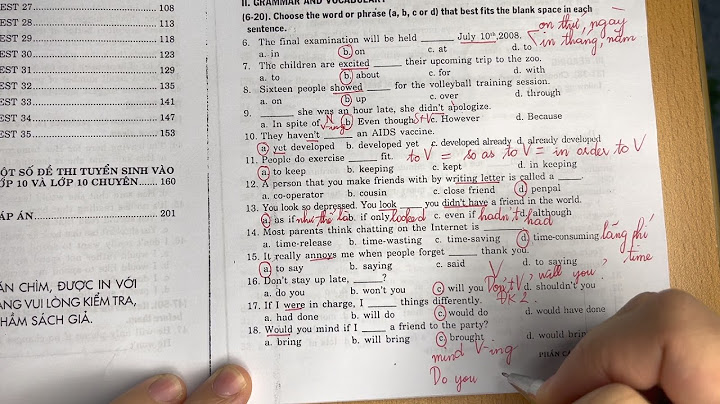 EST 27 108
EST 28 113
EST 29 118
EST 30 123
EST 31 129
EST 32 135
EST 33 141
EST 34 147
EST 35 153
ỘT SỐ ĐỀ THI TUYỂN SINH VÀO
ỚP 10 VÀ LỚP 10 CHUYÊN 160
ÁP ÁN 201
ẤN CHÌM, ĐƯỢC IN VỚI
ANG VUI LÒNG KIỂM TRA,
HẦM SÁCH GIẢ.
II. GRAMMAR AND VOCABULARY
(6-20). Choose the word or phrase (a, b, c or d) that best fits the blank space in each
sentence.
on thứ, ngày
6. The final examination will be held _____ July 10th,2008.
a. in b. on c. at d. to
in tháng, năm
7. The children are excited _____ their upcoming trip to the zoo.
a. to b. about c. for d. with
8. Sixteen people showed _____ for the volleyball training session.
a. on b. up c. over d. through
9. _____ she was an hour late, she didn't apologize.
N
V-ing
a. In spite of b. Even though S+V c. However d. Because
10. They haven't _____ an AIDS vaccine.
a. yet developed b. developed yet c. developed already d. already developed
11. People do exercise _____ fit. to V = so as to V = in order to V
a. to keep b. keeping c. kept d. in keeping
12. A person that you make friends with by writing letter is called a _____.
a. co-operator b. cousin c. close friend d. penpal
13. You look so depressed. You look _____ you didn't have a friend in the world.
a. as if như thể là b. if only c. even if d. although
looked hadn't had
14. Most parents think chatting on the Internet is _____.
a. time-release b. time-wasting c. time-saving d. time-consuming lãng phí
time
15. It really annoys me when people forget _____ thank you.
a. to say b. saying c. said d. to saying
16. Don't stay up late, _____?
V
Don't V, will you
a. do you b. won't you c. will you d. shouldn't you
ĐK 2
17. If I were in charge, I _____ things differently.
a. had done b. will do c. would do d. would have done
18. Would you mind if I _____ a friend to the party?
a. bring b. will bring c. brought d. would brin
mind V-ing
PHẦN CÁ
Do you